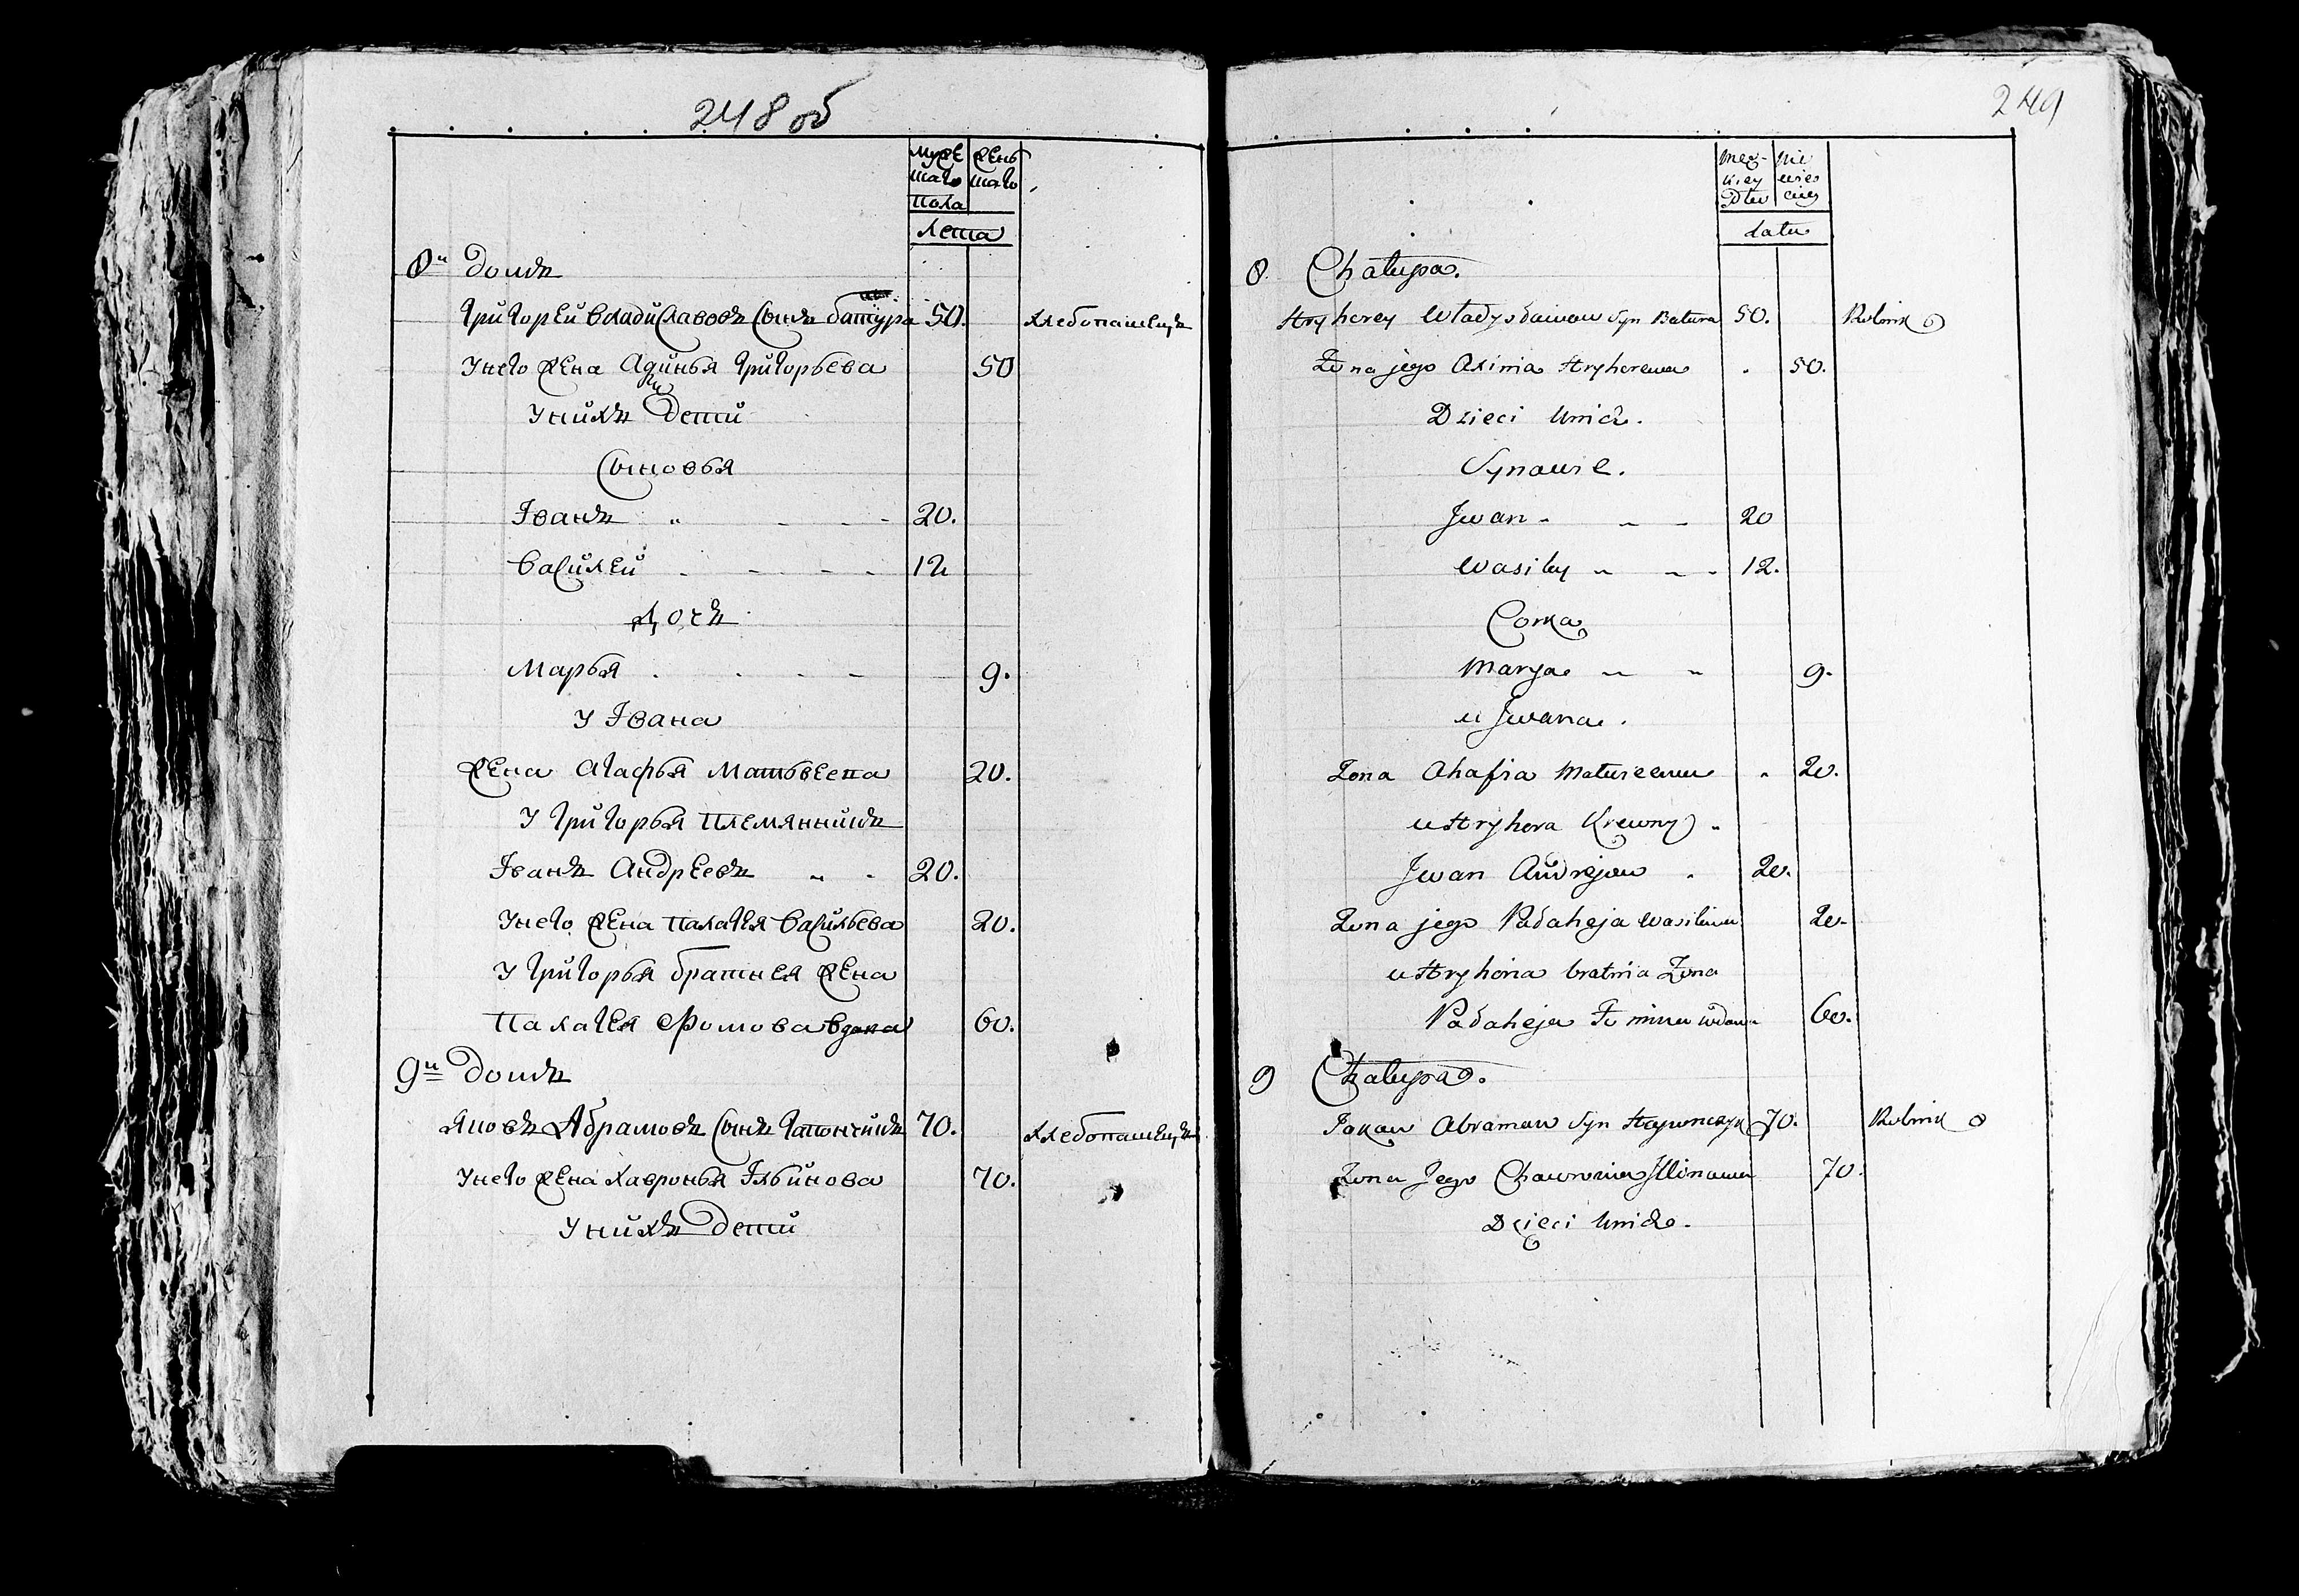 248 об
Муже
скаго
пола
Жень
скаго
Лета
8й Домъ
Григорей Владиславовъ Сынъ батура 50. хлебопашецъ
У него жена Адинья Григорьева 50
У нихъ Дети
Сыновья
Іванъ 20.
Василей 12
Дочь
Марья 9.
У Івана
жена Агафья Матвеева 20.
У Григорья племянникъ
Іванъ Андреевъ 20.
У него жена Палагея Васильева 20.
У Григорья братнея жена
Палагея Фомова вдова 60.
9й Домъ
Яковъ Абрамовъ Сынъ 70. хлебопашецъ
У него жена Хавронья Ільинова 70.
У нихъ Дети
249
Męz-
kiey
Płci
Nie
wies
ciey
Lata
8. Chałupa.
Hryhorey Władysławow Syn Batura 50. Rolnik 6
Żona jego Axinia Hryhorewa 50.
Dzieci U nich.
Synowie.
Jwan 20
Wasiley 12.
Corka
Marya 9.
u Jwana.
Żona Ahafia Matwieewa 20.
u Hryhora Krewny.
Jwan Andrejew 20.
Żona jego Pałaheja Wasilewa 20.
u Hryhoria bratnia Żona
Pałaheja Fomina wdowa 60.
9 Chałupa.
Jakow Abramow Syn 70. Rolnik 8
Żona Jego Chawronia Jllinowa 70.
Dzieci U nich.